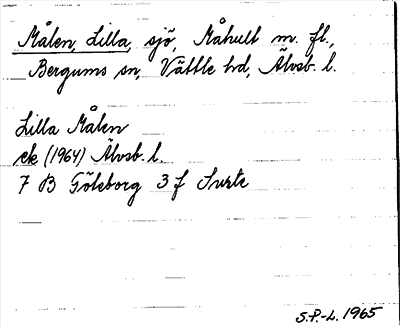 Målen, Lilla, sjö, Råhult m. fl.,
Bergums sn, Vättle hd, Älvsb. l.
Lilla Målen
ek (1964) Älvsb. l.
7 B Göteborg 3 f Surte
S.P.-L. 1965